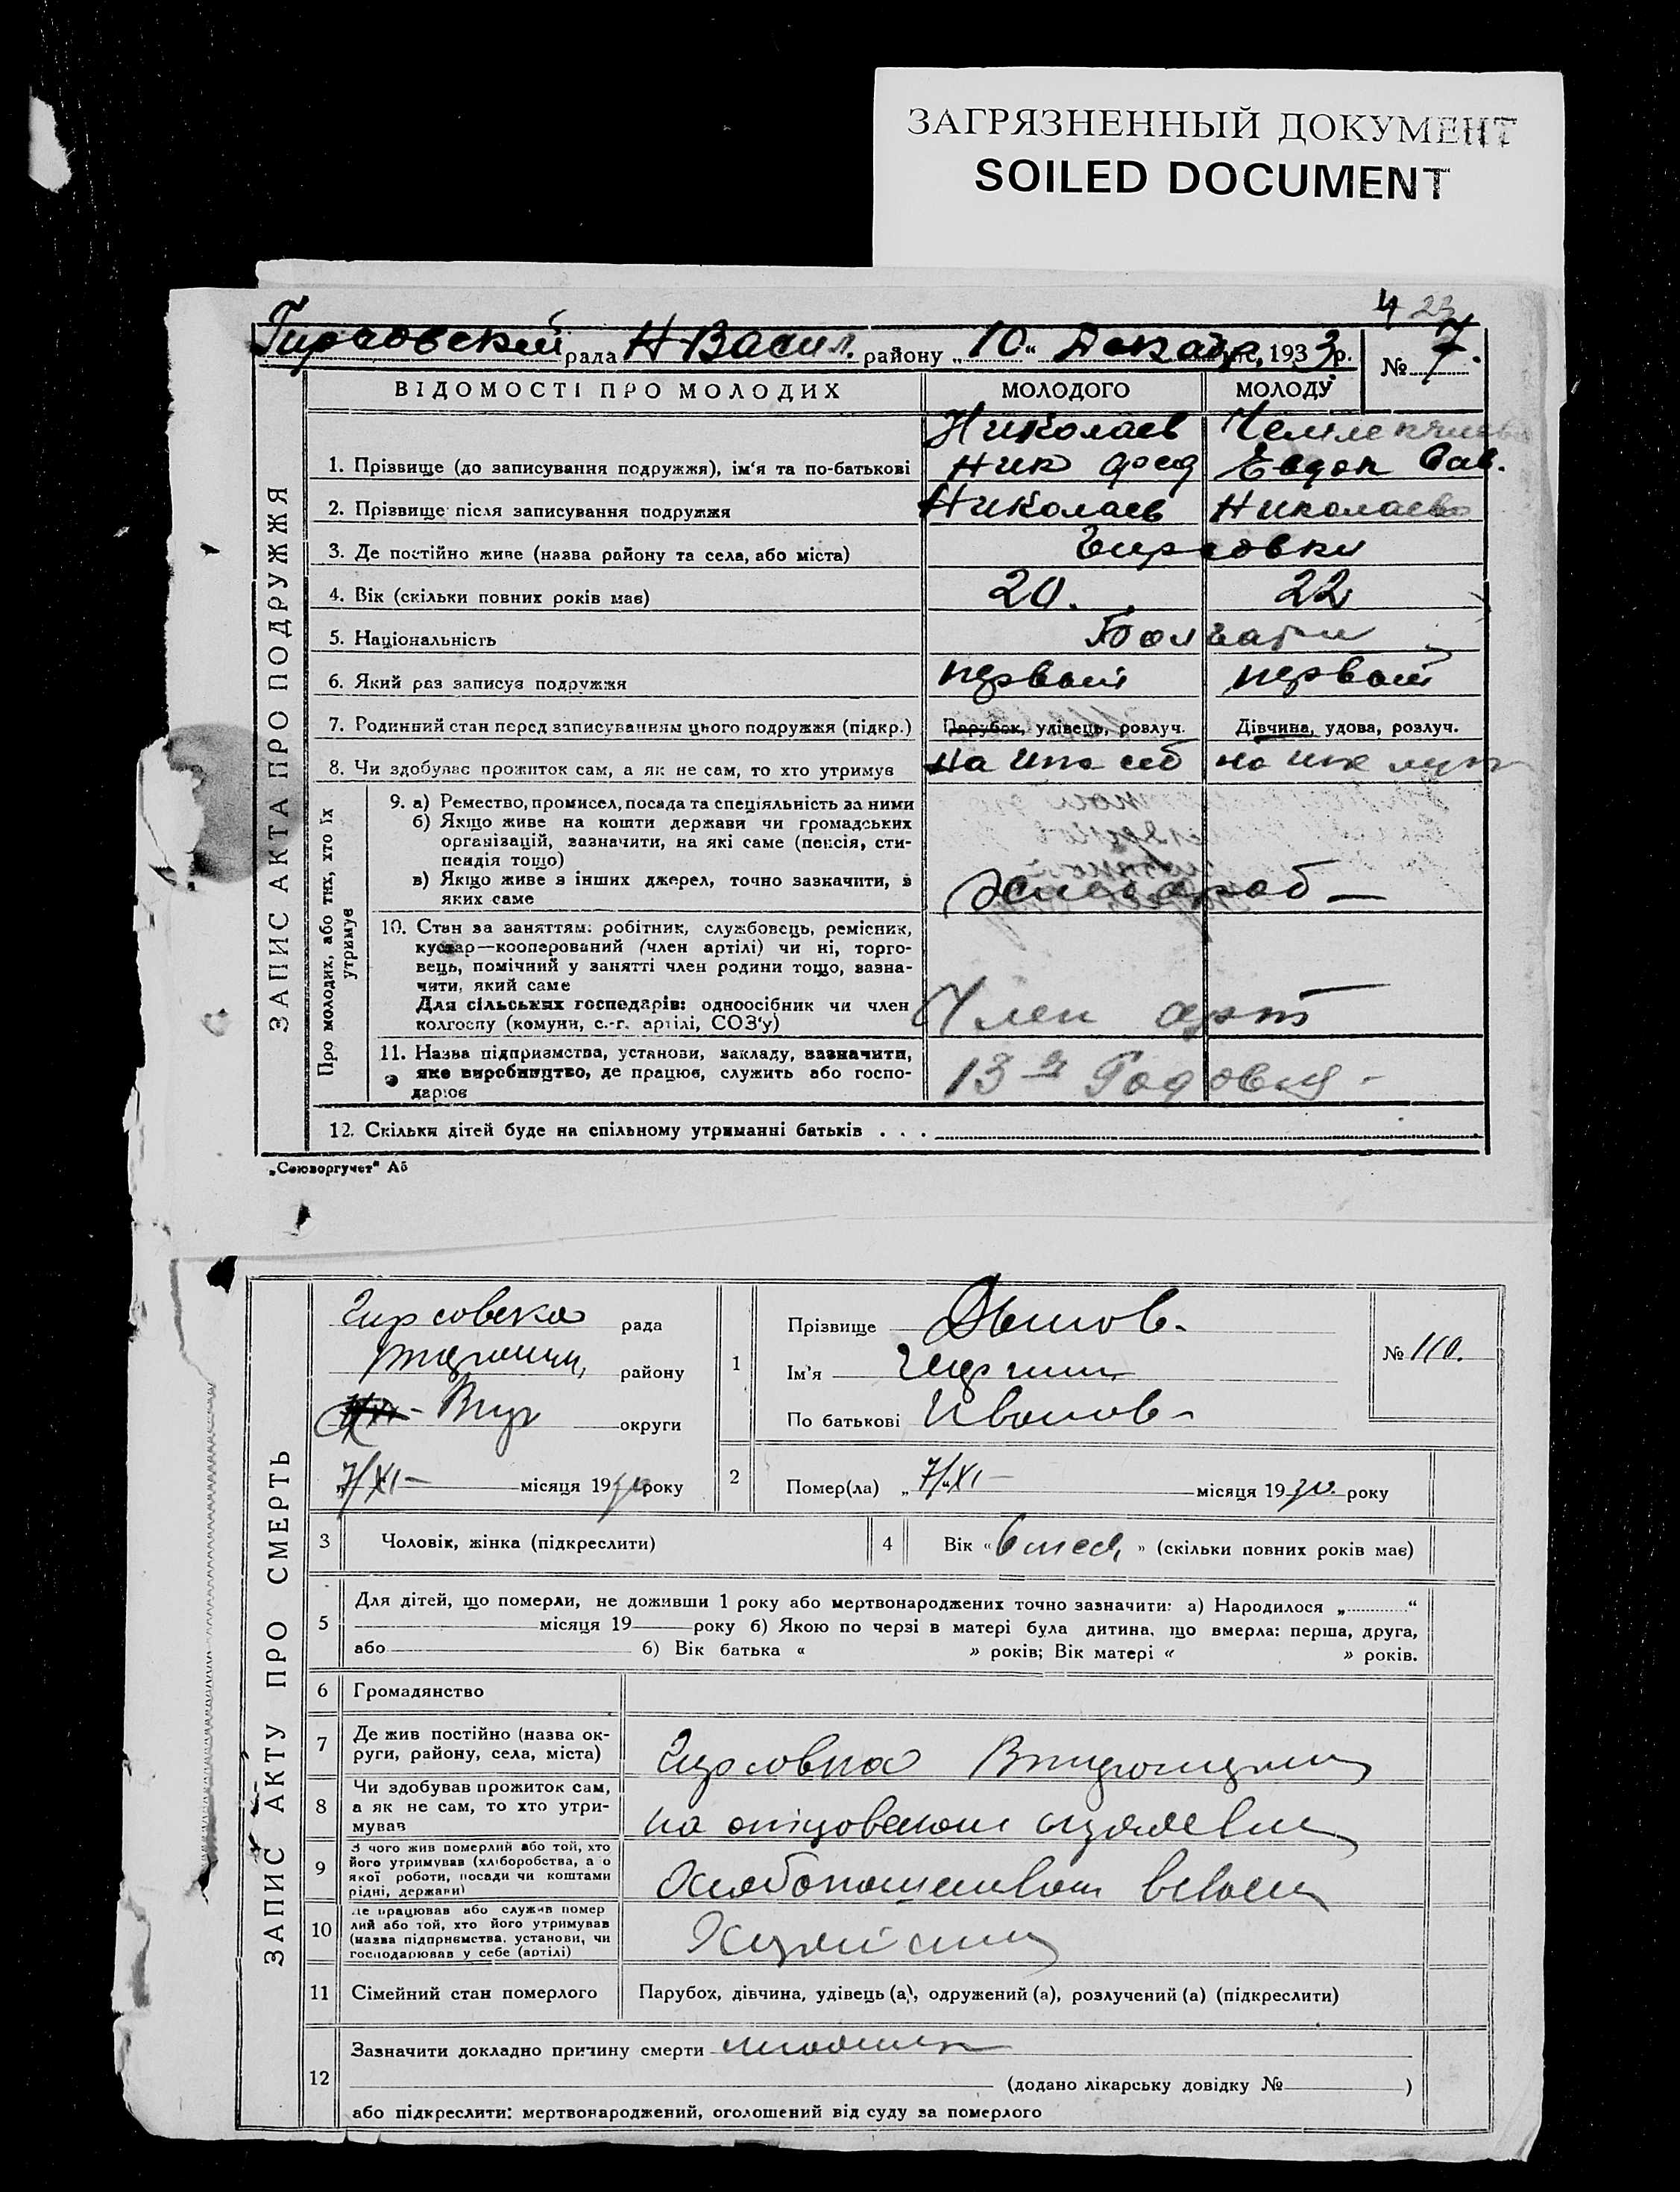 ЗАГРЯЗНЕННЫЙ ДОКУМЕНТ
SOILED DOCUMENT
4 23
Гирсовский рада Н-Васил. району „10“ Декабря, 1933р. № 7.
ВІДОМОСТІ ПРО МОЛОДИХ МОЛОДОГО МОЛОДУ
ЗАПИС АКТА ПРО ПОДРУЖЖЯ
Николаев
1. Прізвище (до записування подружжя), ім'я та по-батькові Ник Фед Евдок Сав.
2. Прізвище після записування подружжя Николаев Николаева
3. Де постійно живе (назва району та села, або міста) Гирсовки
4. Вік (скільки повних років має) 20. 22
5. Національність Болгари
6. Який раз записує подружжя первый первый
7. Родинний стан перед записуванням цього подружжя (підкр.) Парубок, удівець, розлуч. Дівчина, удова, розлуч.
8. Чи здобуває прожиток сам, а як не сам, то хто утримує На иж себ на иж муж
Про молодих, або тих, хто їх утримує
9. а) Ремество, промисел, посада та спеціяльність за ними
б) Якщо живе на кошти держави чи громадських
організацій, зазначити, на які саме (пенсія, сти-
пендія тощо)
в) Якщо живе з інших джерел, точно зазначити, з
яких саме
10. Стан за заняттям: робітник, службовець, ремісник,
кустар—кооперований (член артілі) чи ні, торго-
вець, помічний у занятті член родини тощо, зазна-
чити, який саме
Для сільських господарів: одноосібник чи член
колгоспу (комуни, с.-г. артілі, СОЗ'у) Член арт
11. Назва підприємства, установи, закладу, зазначити,
яке виробництво, де працює, служить або госпо-
дарює 13-я Годовщ-
12. Скільки дітей буде на спільному утриманні батьків . . .
„Союзоргучет“ Аб
ЗАПИС АКТУ ПРО СМЕРТЬ
Гирсовска рада
району
округи
7/XI- місяця 1930 року
1 Прізвище
Ім'я
По батькові Иванов-
№ 110.
2 Помер(ла) „7/XI- місяця 1930 року
3 Чоловік, жінка (підкреслити)
4 Вік «6 мес.» (скільки повних років має)
5 Для дітей, що померли, не доживши 1 року або мертвонароджених точно зазначити: а) Народилося „ “
місяця 19 року б) Якою по черзі в матері була дитина, що вмерла: перша, друга,
або б) Вік батька « » років; Вік матері « » років.
6 Громадянство
7 Де жив постійно (назва ок-
руги, району, села, міста) Гирсовка
8 Чи здобував прожиток сам,
а як не сам, то хто утри-
мував на отцовском
9 З чого жив померлий або той, хто
його утримував (хліборобства, а о
якої роботи, посади чи коштами
рідні, держави) Хлебопашеством в своем
10 Де працював або служив помер
лий або той, хто його утримував
(назва підприємства, установи, чи
господарював у себе (артілі)
11 Сімейний стан померлого Парубох, дівчина, удівець (а), одружений (а), розлучений (а) (підкреслити)
12 Зазначити докладно причину смерти
(додано лікарську довідку № )
або підкреслити: мертвонароджений, оголошений від суду за померлого